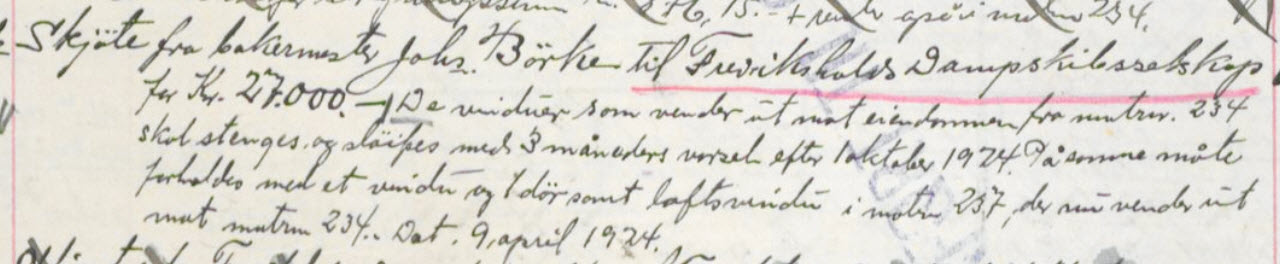 876,15.- + renter også i matrn 234.
Skjöte fra bakermester Johs. Börke til Fredrikshalds Dampskibsselskap
for Kr. 27.000. – De vinduer som vender ut mot eiendommen fra matrnr. 234
skal stenges og slöifes med 3 måneders varsel efter 1 oktober 1924. På samme måte
forholdes med et vindu og 1 dör samt loftsvindu i matrn 237, der nu vender ut
mot matrn 234. Dat. 9, april 1924.